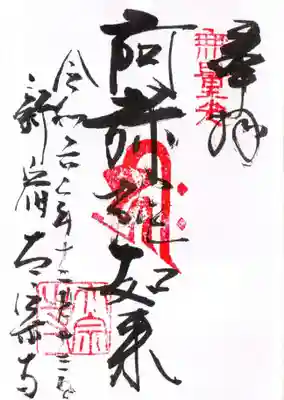 奉拝
無量光
阿弥陀如来
令和六年十二月十三日
新宿太宗寺